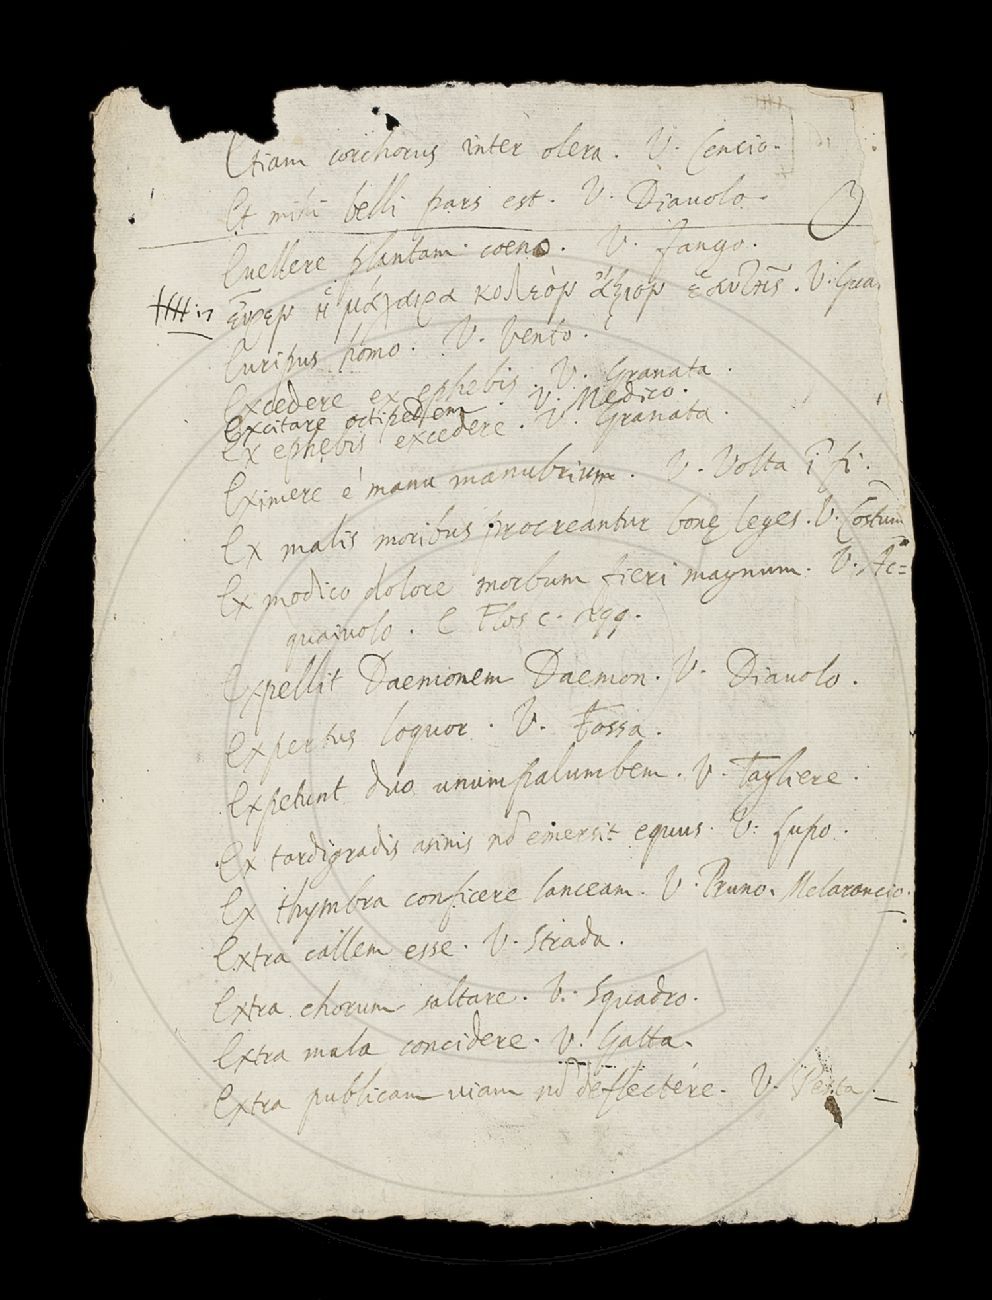 Etiam corchorus inter olera. V. Cencio.
Et mihi belli pars est. V. Diauolo.
Euellere plantam coeno. V. fango.
εὗρεν ἡ μάχαιρα κολεὸν ἄξιον ἑαυτῆς. V. Gua
Euripus homo. V. Vento.
Excedere ex ephebis. V. Granata.
Excitare octipedem V. Medico.
Ex ephebis excedere. V. Granata.
Eximere è manu manubrium. V. Volta ĩ fi.
Ex malis moribus procreantur bonę leges. V. Costum
Ex modico dolore morbum fieri magnum. V. Ac=
quaiuolo. E Flos c.
Expellit Daemonem Daemon. V. Diauolo.
Expertus loquor. V. Fossa.
Expetunt duo unum palumbem. V. Tagliere.
Ex tardigradis asinis nõ emersit equus. V. Lupo.
Ex thymbra conficere lanceam. V. Pruno. Melarancio.
Extra callem esse. V. Strada.
Extra chorum saltare. V. Squadro.
Extra mala concidere. V. Gatta.
Extra publicam uiam nõ deflectére. V. Pesta.